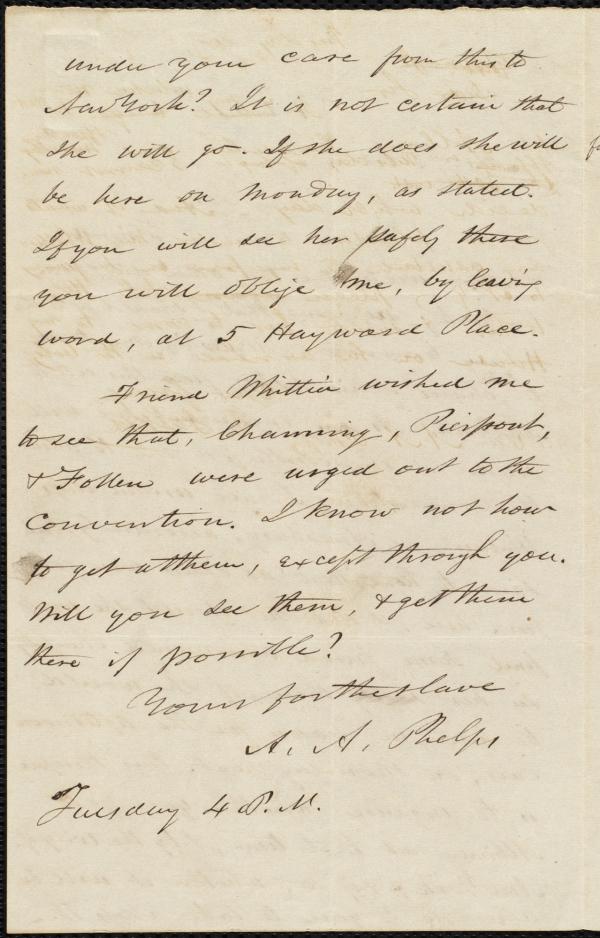 under your care from this to
New York? It is not certain that
she will go. If she does she will
be here on Monday, as stated.
If you will see her safely there
you will oblige me, by leaving
word, at 5 Hayward Place.
Friend Whittier wished me
to see that, Channing, Pierpont,
& Follen were urged out to the
convention. I know not how
to get at them, except through you.
Will you see them, & get them
there if possible?
Yours for the slave
A. A. Phelps
Tuesday 4 P. M.